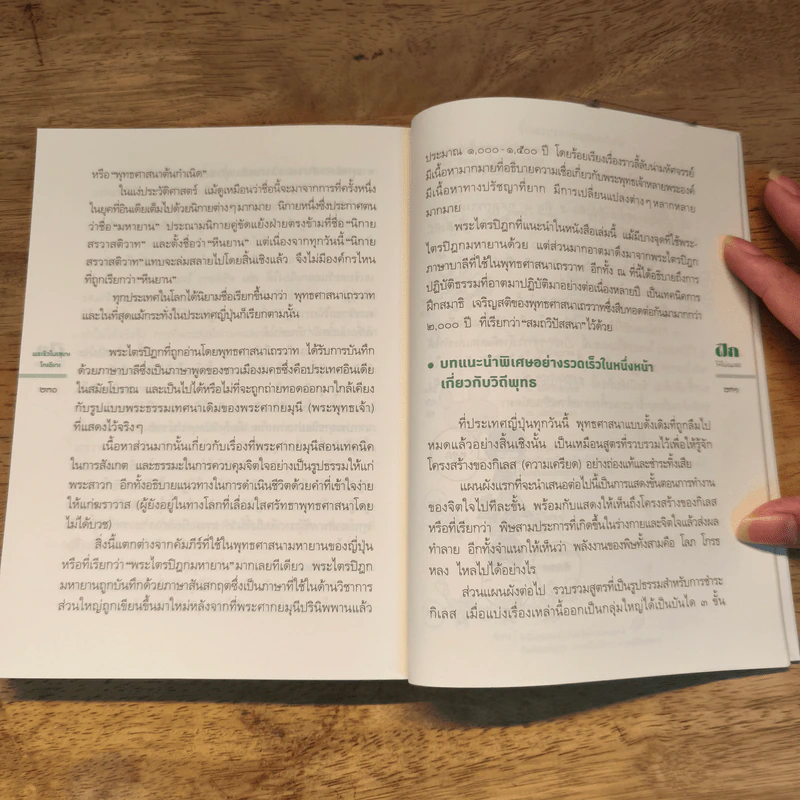 หรือ "พุทธศาสนาต้นกำเนิด"
ในแง่ประวัติศาสตร์ แม้ดูเหมือนว่าชื่อนี้จะมาจากการที่ครั้งหนึ่ง
ในยุคที่อินเดียเต็มไปด้วยนิกายต่างๆ มากมาย นิกายหนึ่งซึ่งประกาศตน
ว่าชื่อ "มหายาน" ประณามนิกายคู่ขัดแย้งฝ่ายตรงข้ามที่ชื่อ "นิกาย
สรวาสติวาท" และตั้งชื่อว่า "หีนยาน" แต่เนื่องจากทุกวันนี้ "นิกาย
สรวาสติวาท" แทบจะล่มสลายไปโดยสิ้นเชิงแล้ว จึงไม่มีองค์กรไหน
ที่ถูกเรียกว่า "หีนยาน"
ทุกประเทศในโลกได้นิยามชื่อเรียกขึ้นมาว่า พุทธศาสนาเถรวาท
และในที่สุดแม้กระทั่งในประเทศญี่ปุ่นก็เรียกตามนั้น
พระไตรปิฎกที่ถูกอ่านโดยพุทธศาสนาเถรวาท ได้รับการบันทึก
ด้วยภาษาบาลีซึ่งเป็นภาษาพูดของชาวเมืองมคธซึ่งคือประเทศอินเดีย
ในสมัยโบราณ และเป็นไปได้หรือไม่ที่จะถูกถ่ายทอดออกมาใกล้เคียง
กับรูปแบบพระธรรมเทศนาเดิมของพระศากยมุนี (พระพุทธเจ้า)
ที่แสดงไว้จริงๆ
เนื้อหาส่วนมากนั้นเกี่ยวกับเรื่องที่พระศากยมุนีสอนเทคนิค
ในการสังเกต และธรรมะในการควบคุมจิตใจอย่างเป็นรูปธรรมให้แก่
พระสาวก อีกทั้งอธิบายแนวทางในการดำเนินชีวิตด้วยคำที่เข้าใจง่าย
ให้แก่ฆราวาส (ผู้ยังอยู่ในทางโลกที่เลื่อมใสศรัทธาพุทธศาสนาโดย
ไม่ได้บวช)
สิ่งนี้แตกต่างจากคัมภีร์ที่ใช้ในพุทธศาสนามหายานของญี่ปุ่น
หรือที่เรียกว่า "พระไตรปิฎกมหายาน" มากเลยทีเดียว พระไตรปิฎก
มหายานถูกบันทึกด้วยภาษาสันสกฤตซึ่งเป็นภาษาที่ใช้ในด้านวิชาการ
ส่วนใหญ่ถูกเขียนขึ้นมาใหม่หลังจากที่พระศากยมุนีปรินิพพานแล้ว
๒๓๐
ประมาณ ๑,๐๐๐-๑,๕๐๐ ปี โดยร้อยเรียงเรื่องราวลี้ลับน่ามหัศจรรย์
มีเนื้อหามากมายที่อธิบายความเชื่อเกี่ยวกับพระพุทธเจ้าหลายพระองค์
มีเนื้อหาทางปรัชญาที่ยาก มีการเปลี่ยนแปลงต่างๆ หลากหลาย
มากมาย
พระไตรปิฎกที่แนะนำในหนังสือเล่มนี้ แม้มีบางจุดที่ใช้พระ-
ไตรปิฎกมหายานด้วย แต่ส่วนมากอาตมาดึงมาจากพระไตรปิฎก
ภาษาบาลีที่ใช้ในพุทธศาสนาเถรวาท อีกทั้ง ณ ที่นี้ได้อธิบายถึงการ
ปฏิบัติธรรมที่อาตมาปฏิบัติมาอย่างต่อเนื่องหลายปี เป็นเทคนิคการ
ฝึกสมาธิ เจริญสติของพุทธศาสนาเถรวาทซึ่งสืบทอดต่อกันมามากกว่า
๒,๐๐๐ ปี ที่เรียกว่า "สมถวิปัสสนา" ไว้ด้วย
• บทแนะนำพิเศษอย่างรวดเร็วในหนึ่งหน้า
เกี่ยวกับวิถีพุทธ
ที่ประเทศญี่ปุ่นทุกวันนี้ พุทธศาสนาแบบดั้งเดิมที่ถูกลืมไป
หมดแล้วอย่างสิ้นเชิงนั้น เป็นเหมือนสูตรที่รวบรวมไว้เพื่อให้รู้จัก
โครงสร้างของกิเลส (ความเครียด) อย่างถ่องแท้และชำระทิ้งเสีย
แผนผังแรกที่จะนำเสนอต่อไปนี้เป็นการแสดงขั้นตอนการทำงาน
ของจิตใจไปทีละขั้น พร้อมกับแสดงให้เห็นถึงโครงสร้างของกิเลส
หรือที่เรียกว่า พิษสามประการที่เกิดขึ้นในร่างกายและจิตใจแล้วส่งผล
ทำลาย อีกทั้งจำแนกให้เห็นว่า พลังงานของพิษทั้งสามคือ โลภ โกรธ
หลง ไหลไปได้อย่างไร
ส่วนแผนผังต่อไป รวบรวมสูตรที่เป็นรูปธรรมสำหรับการชำระ
กิเลส เมื่อแบ่งเรื่องเหล่านี้ออกเป็นกลุ่มใหญ่ได้เป็นบันได ๓ ขั้น
ฝึก
๒๓๑